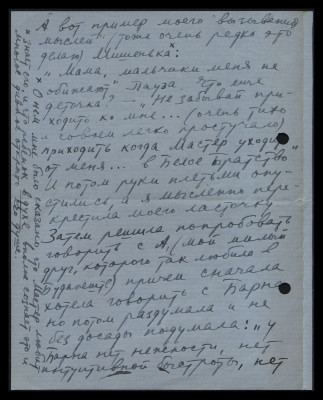 А вот пример моего "вызывания
мыслей" (тоже очень редко это
делаю) Мишенька ×
"Мама, мальчики меня не
обижают" Пауза. "Что еще
деточка? – "Не забывай при-
ходить ко мне... (очень тихо
и совсем легко простучало)
приходить когда Мастер уходит
от меня... в Белое Братство"
И потом руки плетьми опу-
стились, а я мысленно пере-
крестила моего ласточку
Затем решила попробовать
говорить с А. (мой милый
друг, которого так любила в
) причем сначала
хотела говорить с Барна
но потом раздумала и не
без досады подумала: "у
Барна нет нежности, нет
интуитивной быстроты, нет
× О нем мне было сказано, что Мастер любит